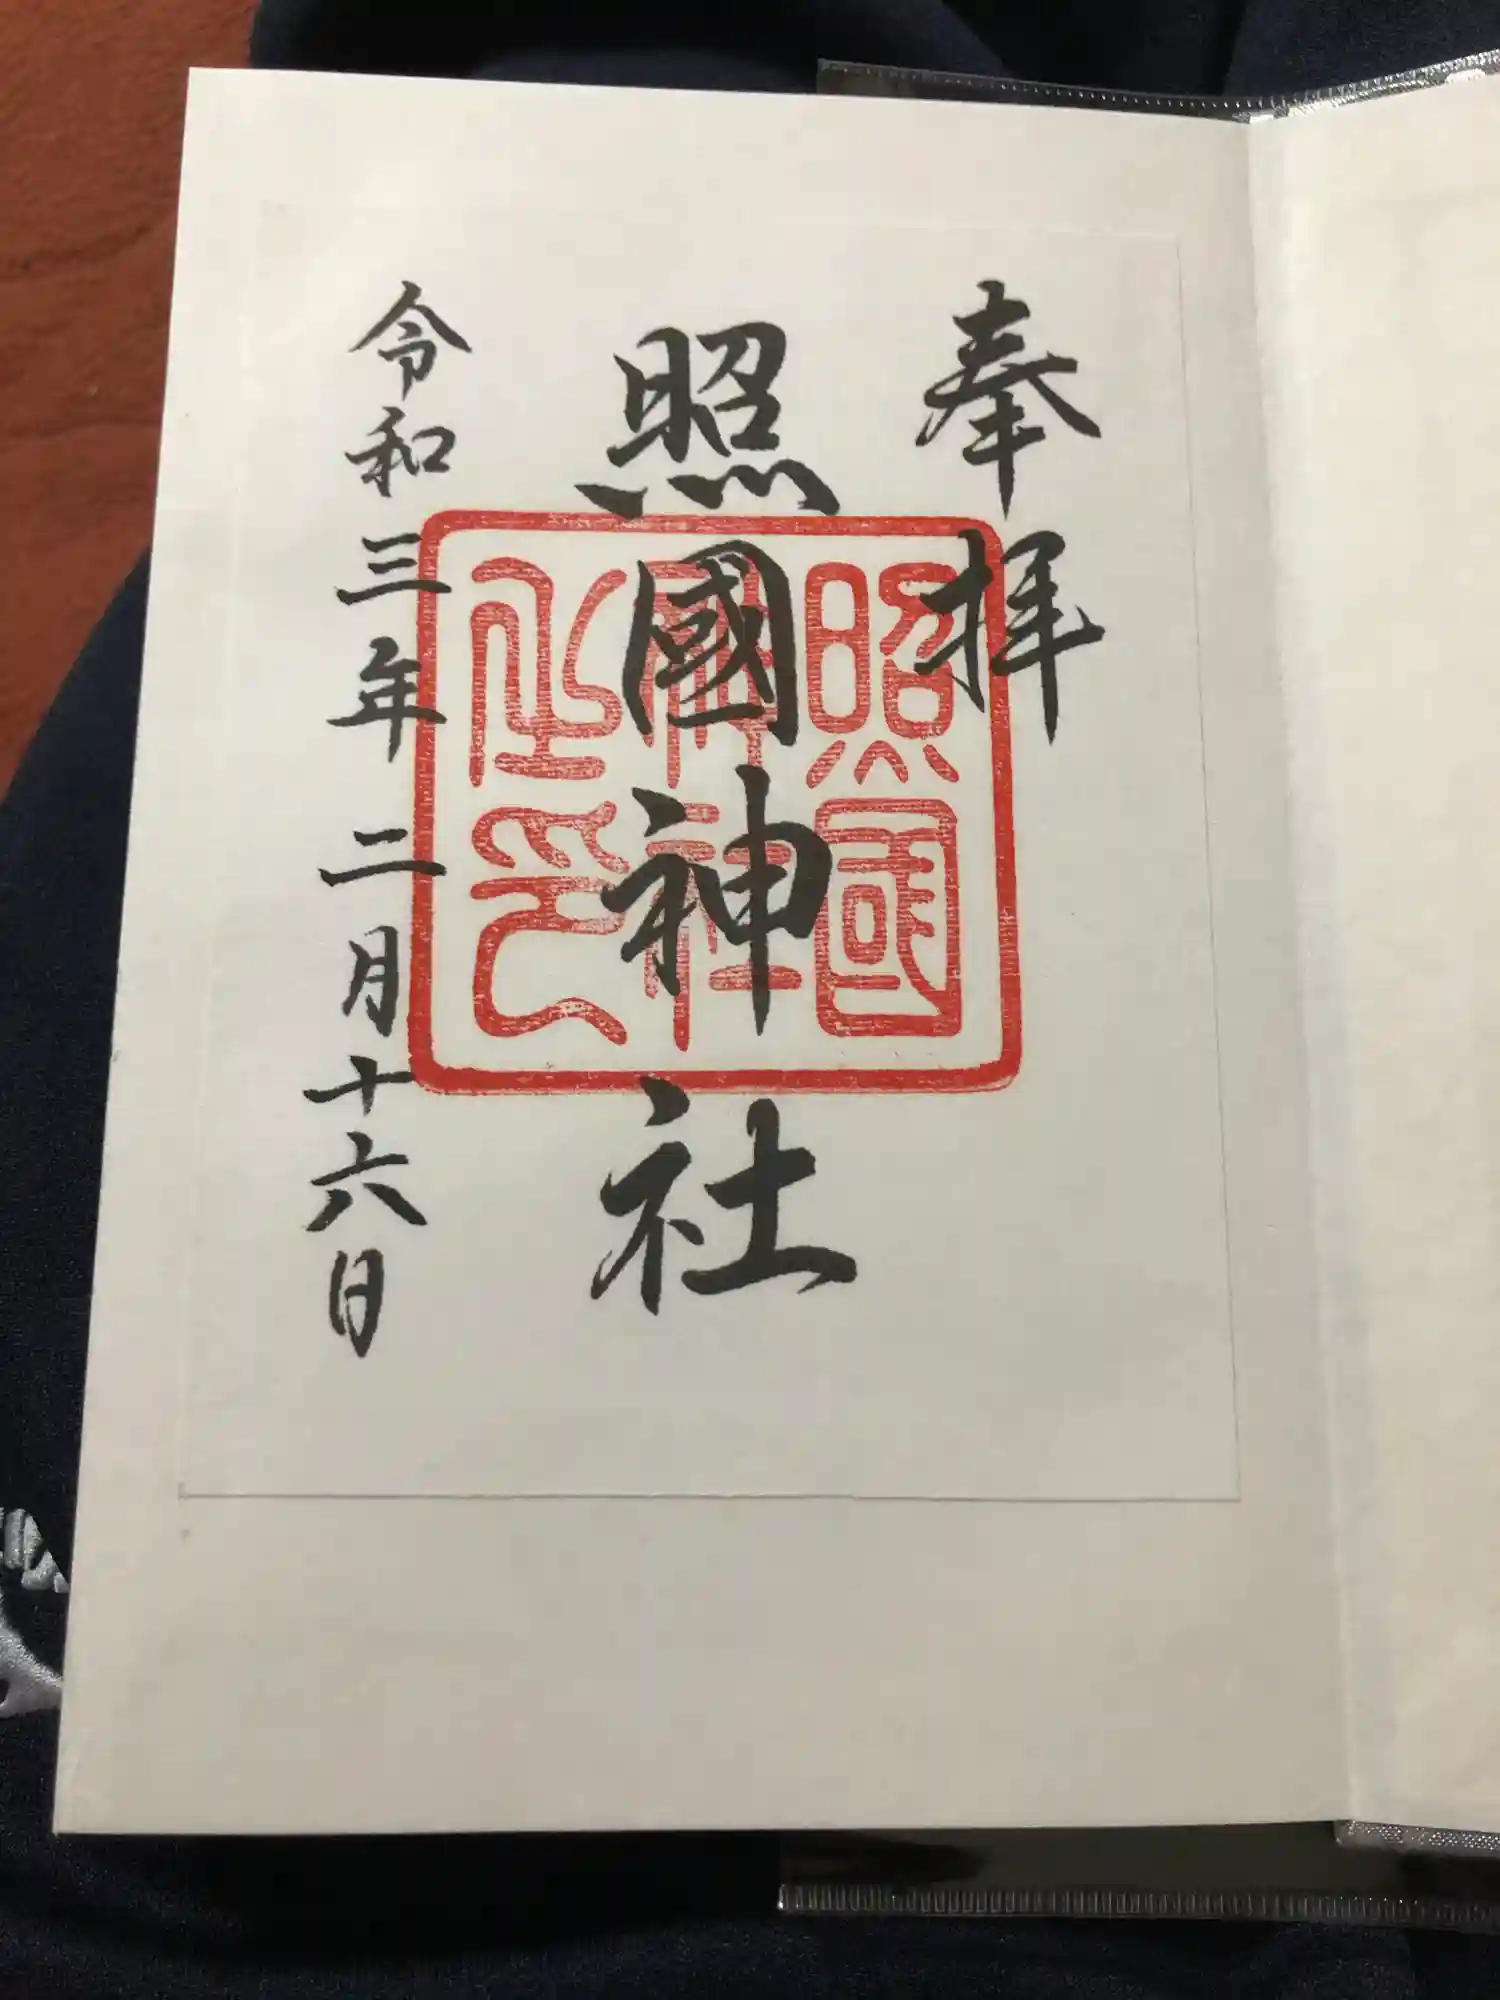 奉拝
照國神社
照國
神社
之印
令和三年二月十六日